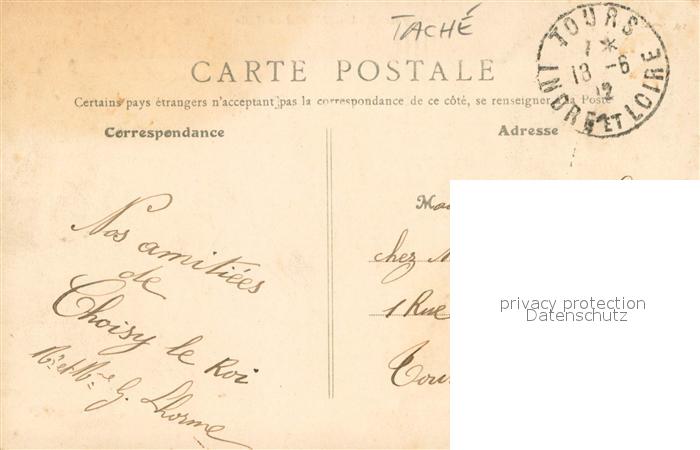 TACHÉ
TOURS
1 *
18 - 6
12
INDRE ET LOIRE
CARTE POSTALE
Certains pays étrangers n'acceptant pas la correspondance de ce côté, se renseigner à la Poste
Correspondance
Adresse
Nos amitiées
de
Choisy le Roi
Mr et Mme G. Lhorme
chez
1 Rue
privacy protection
Datenschutz